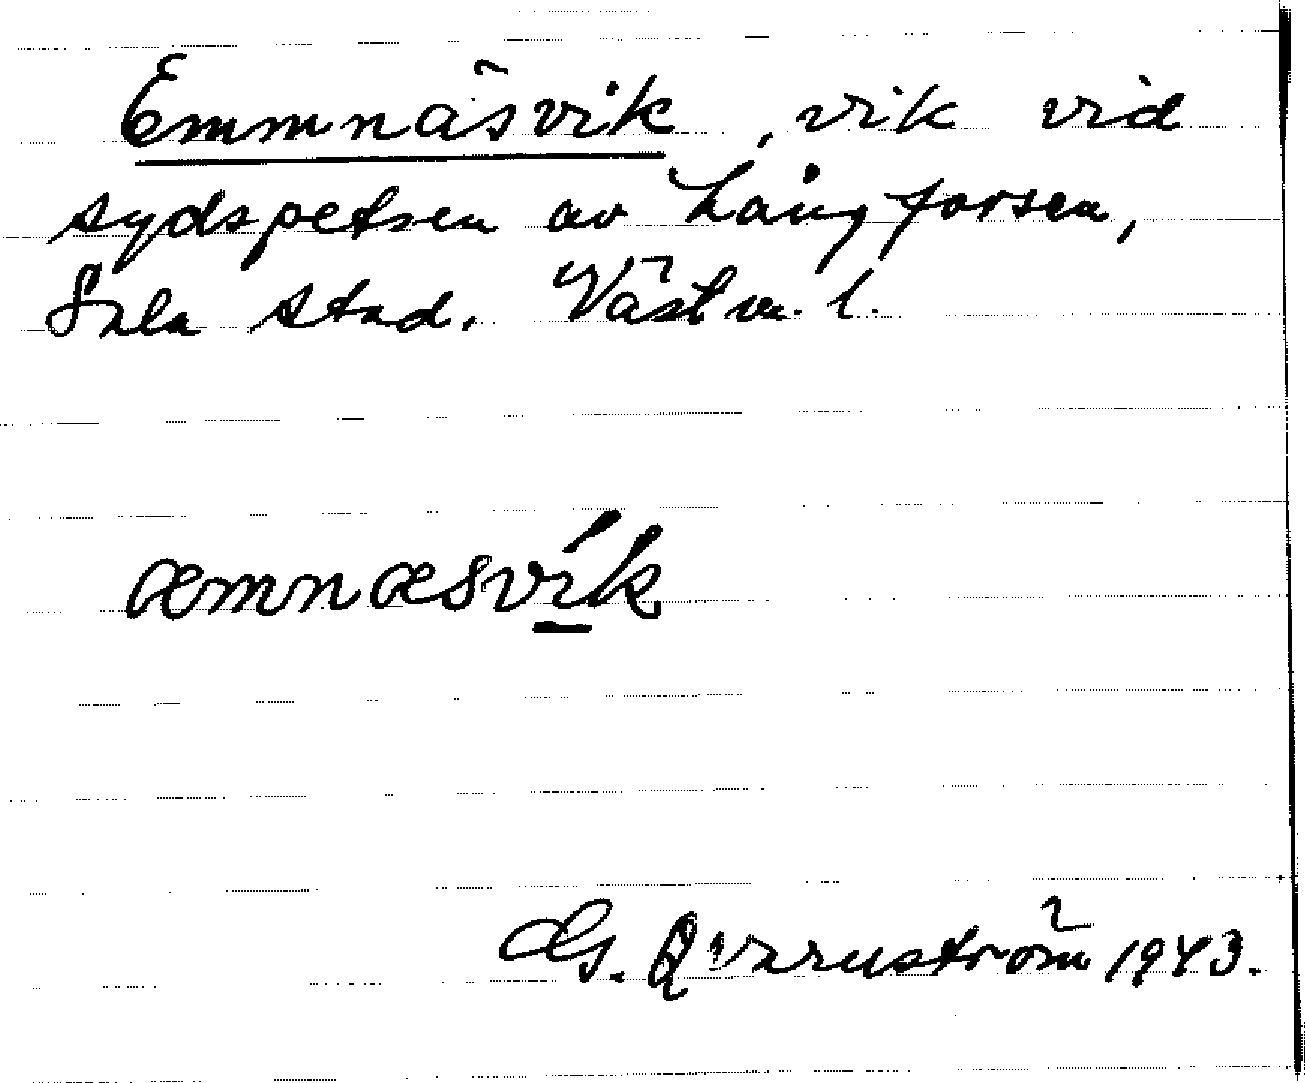 Emmnäsvik, vik vid
sydspetsen av Långforsen,
Sala stad. Västm. l.
æmnæsvík
G. Qvarnström 1943.